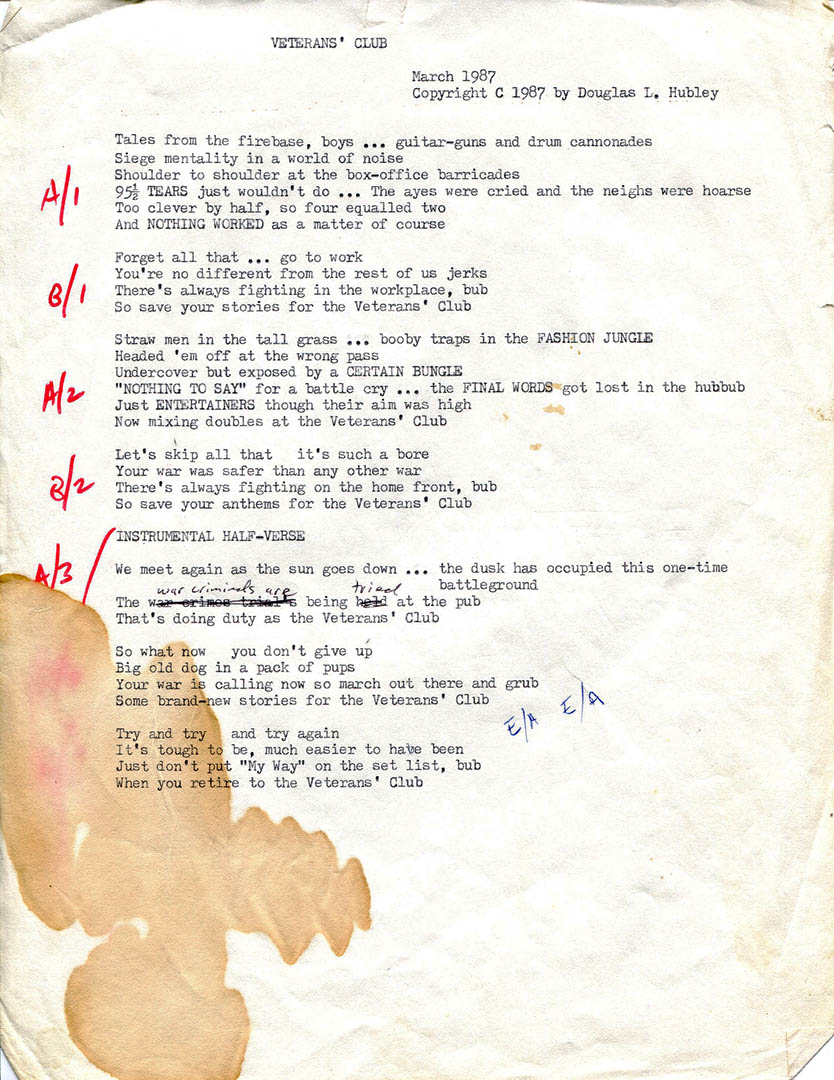 VETERANS' CLUB
March 1987
Copyright C 1987 by Douglas L. Hubley
Tales from the firebase, boys ... guitar-guns and drum cannonades
Siege mentality in a world of noise
Shoulder to shoulder at the box-office barricades
A/1
95½ TEARS just wouldn't do ... The ayes were cried and the neighs were hoarse
Too clever by half, so four equalled two
And NOTHING WORKED as a matter of course
Forget all that ... go to work
You're no different from the rest of us jerks
B/1
There's always fighting in the workplace, bub
So save your stories for the Veterans' Club
Straw men in the tall grass ... booby traps in the FASHION JUNGLE
Headed 'em off at the wrong pass
Undercover but exposed by a CERTAIN BUNGLE
A/2
"NOTHING TO SAY" for a battle cry ... the FINAL WORDS got lost in the hubbub
Just ENTERTAINERS though their aim was high
Now mixing doubles at the Veterans' Club
Let's skip all that it's such a bore
Your war was safer than any other war
B/2
There's always fighting on the home front, bub
So save your anthems for the Veterans' Club
INSTRUMENTAL HALF-VERSE
A/3
We meet again as the sun goes down ... the dusk has occupied this one-time
battleground
war criminals are tried
The war crimes trial's being held at the pub
That's doing duty as the Veterans' Club
So what now you don't give up
Big old dog in a pack of pups
Your war is calling now so march out there and grub
Some brand-new stories for the Veterans' Club
E/A E/A
Try and try and try again
It's tough to be, much easier to have been
Just don't put "My Way" on the set list, bub
When you retire to the Veterans' Club